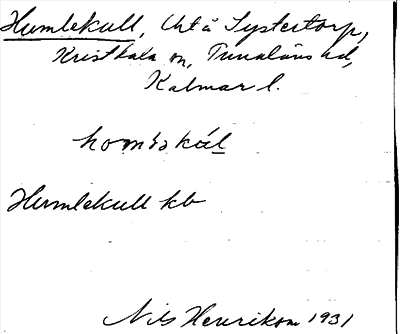 Humlekull, Urt å Systertorp,
Kristdala sn, Tunaläns hd,
Kalmar l.
Humlekull kb
Nils Henrikson 1931